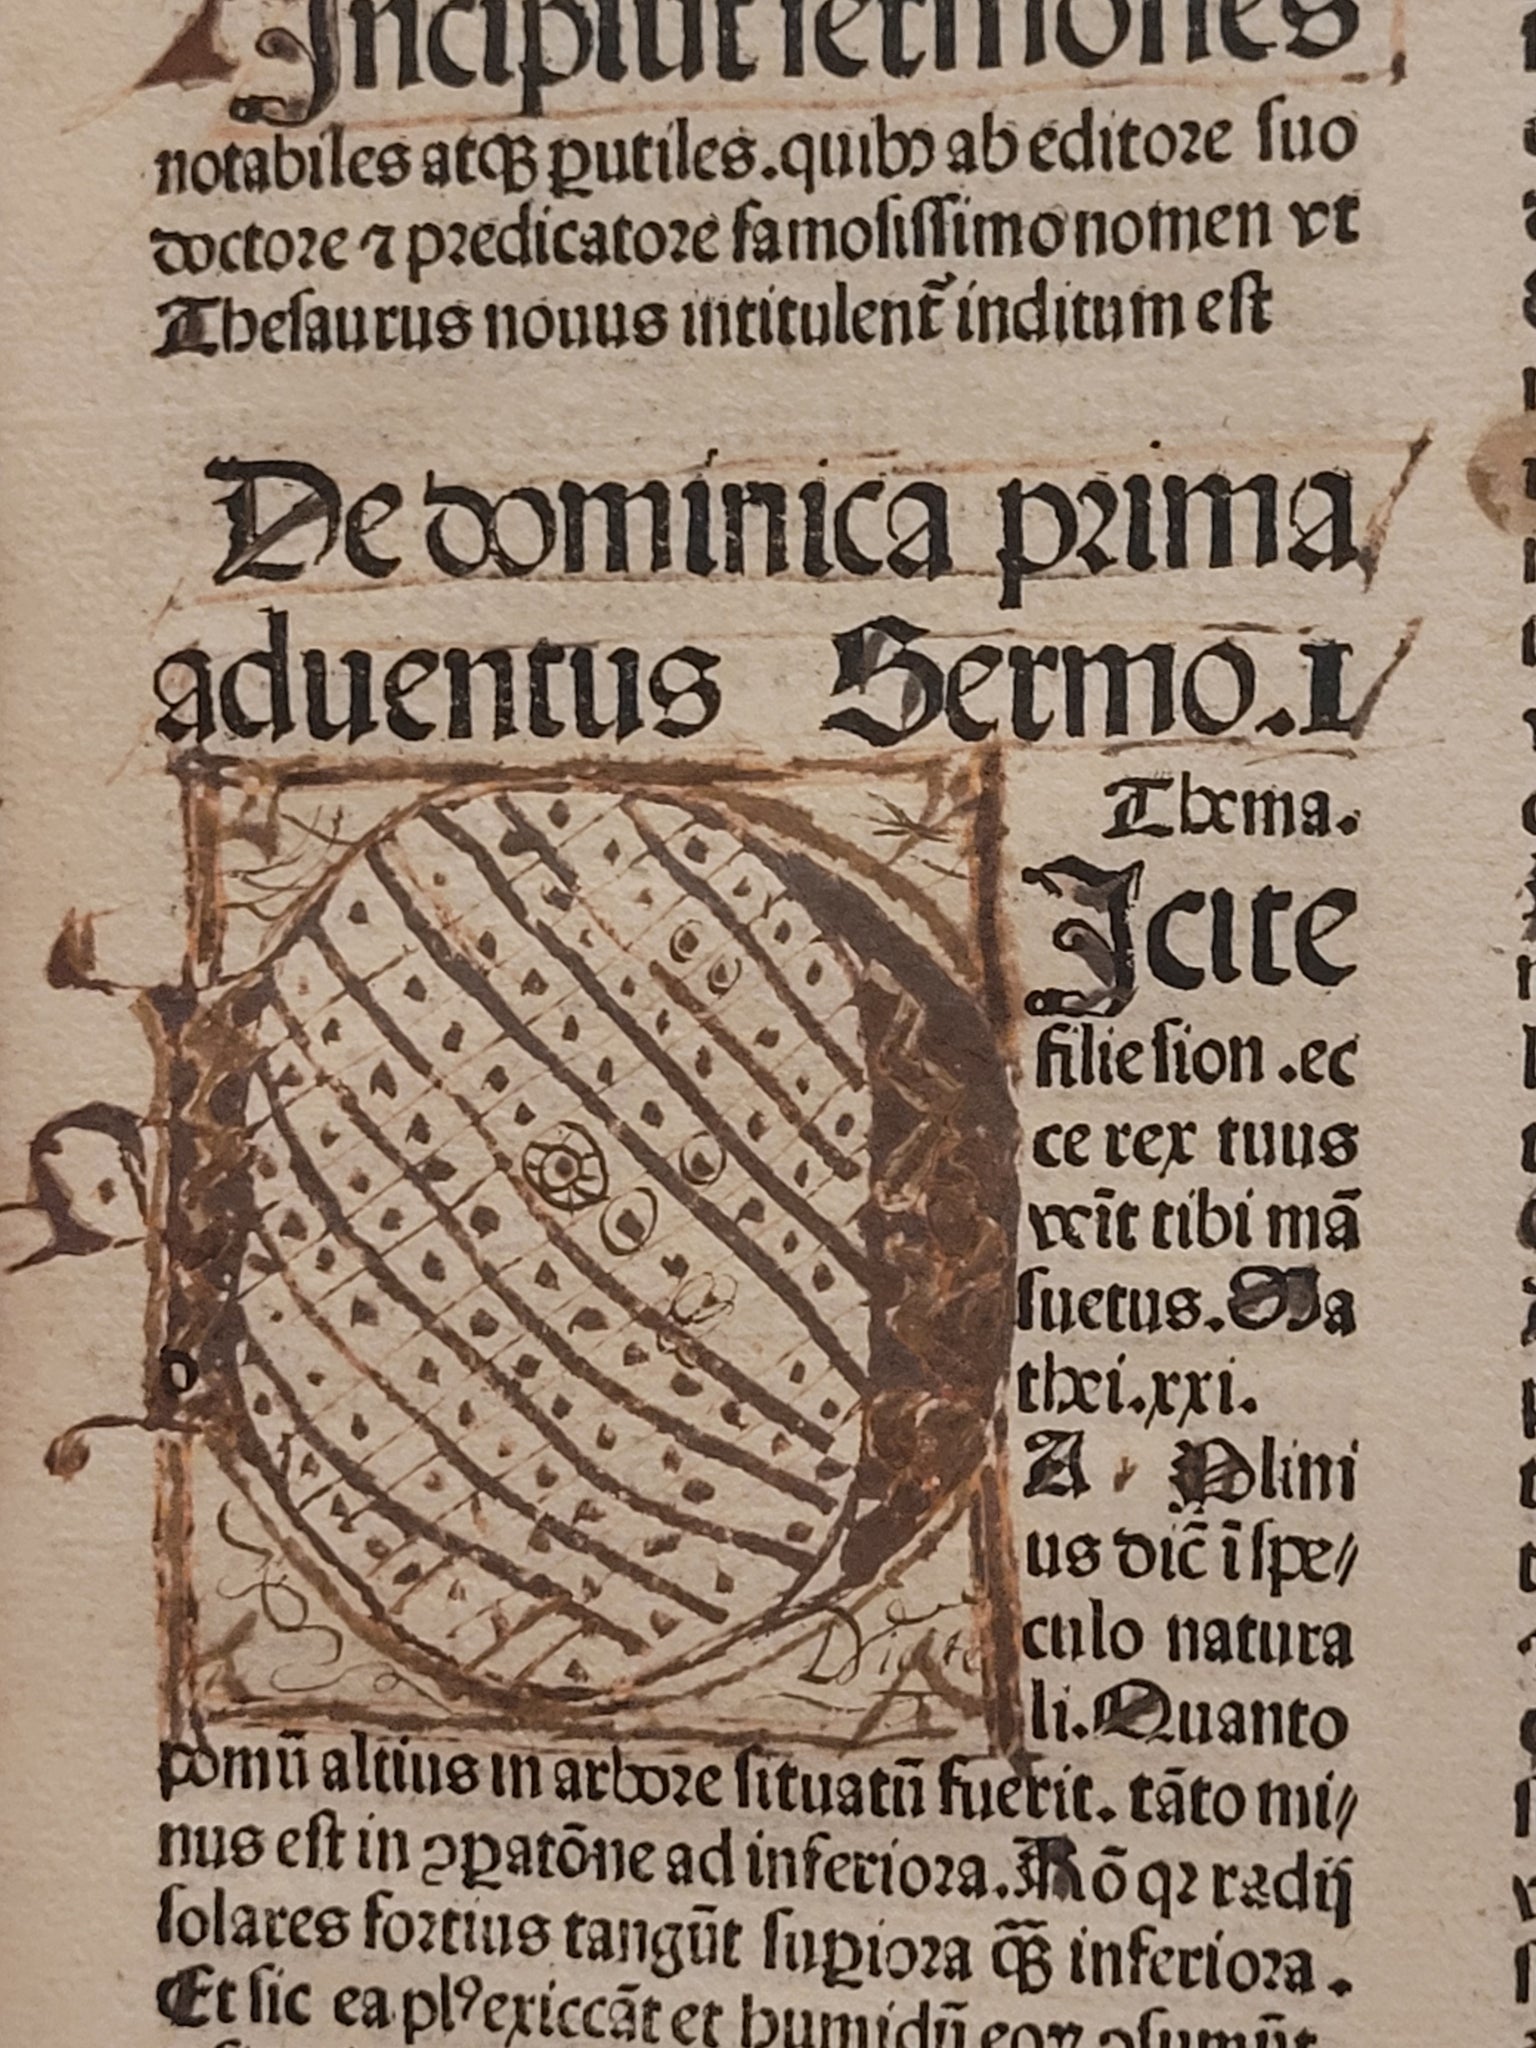 Incipiūt sermones
notabiles atqꝫ ꝑutiles. quibꝰ ab editore suo
doctore ⁊ predicatore famosissimo nomen vt
Thesaurus nouus intitulent᷑ inditum est
De dominica prima
aduentus Sermo .I
Thema.
Icite
filie sion . ec
ce rex tuus
venīt tibi mā
suetus. Ma
thei. xxi.
A Plini
us dic̄ ī spe⸗
culo natura
li. Quanto
pomū altius in arbore situatū fuerit. tāto mi⸗
nus est in ꝯꝑatōne ad inferiora. Rō qꝛ radij
solares fortius tangūt suꝑiora q̄ꝫ inferiora.
Et sic ea plꝰ exiccāt et humidū eoꝝ ꝯsumūt
o
Dicite